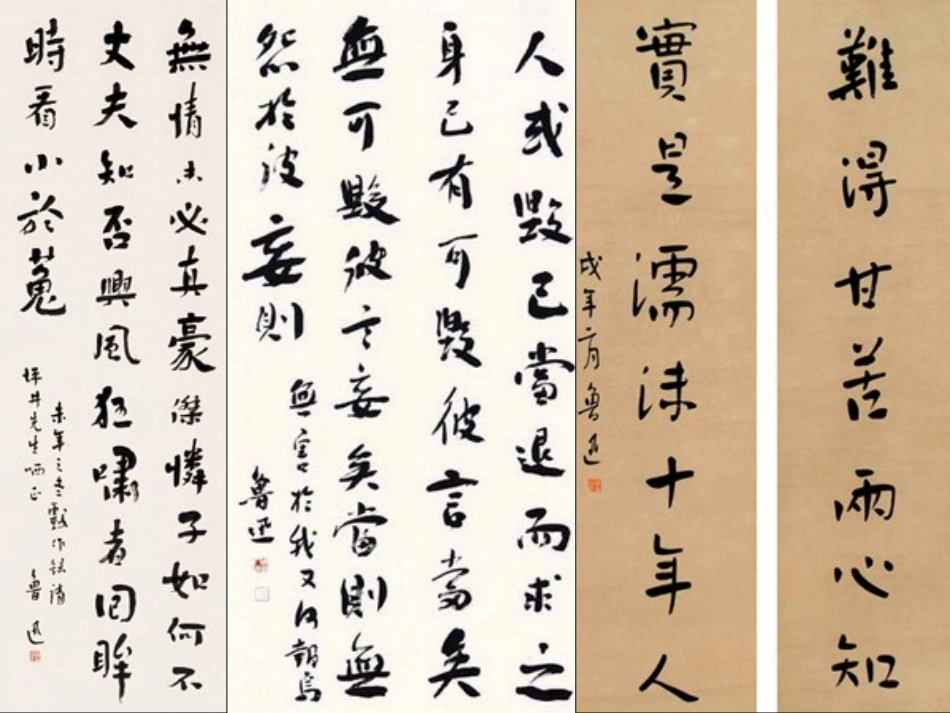 難得甘苦兩心知
實是濡沫十年人
戌年六月 魯迅
人或毀己當退而求之
身己有可毀彼言當矣
無可毀彼言妄矣當則無
怨於彼妄則
無害於我又何報焉
魯迅
無情未必真豪傑憐子如何不
丈夫知否興風狂嘯者囘眸
時看小於菟
未年之冬戲作錄請
坪井先生哂正
魯迅